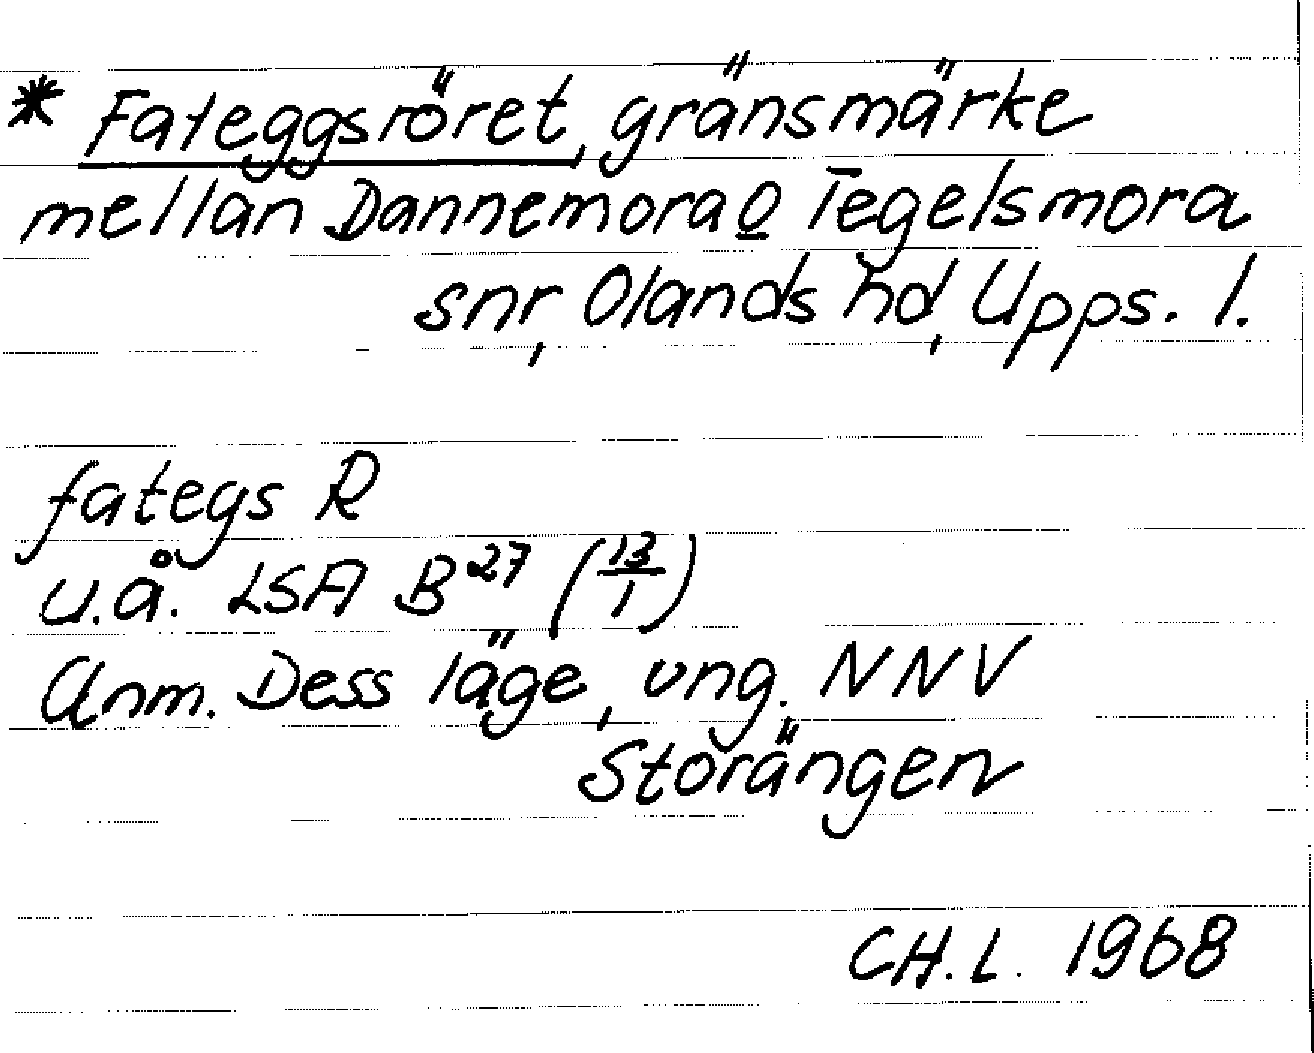 * Fateggsröret, gränsmärke
mellan Dannemora o Tegelsmora
snr, Olands hd, Upps. l.
fategs R
u.å. LSA B27 (13/1)
Anm. Dess läge, ung. NNV
Storängen
CH.L. 1968